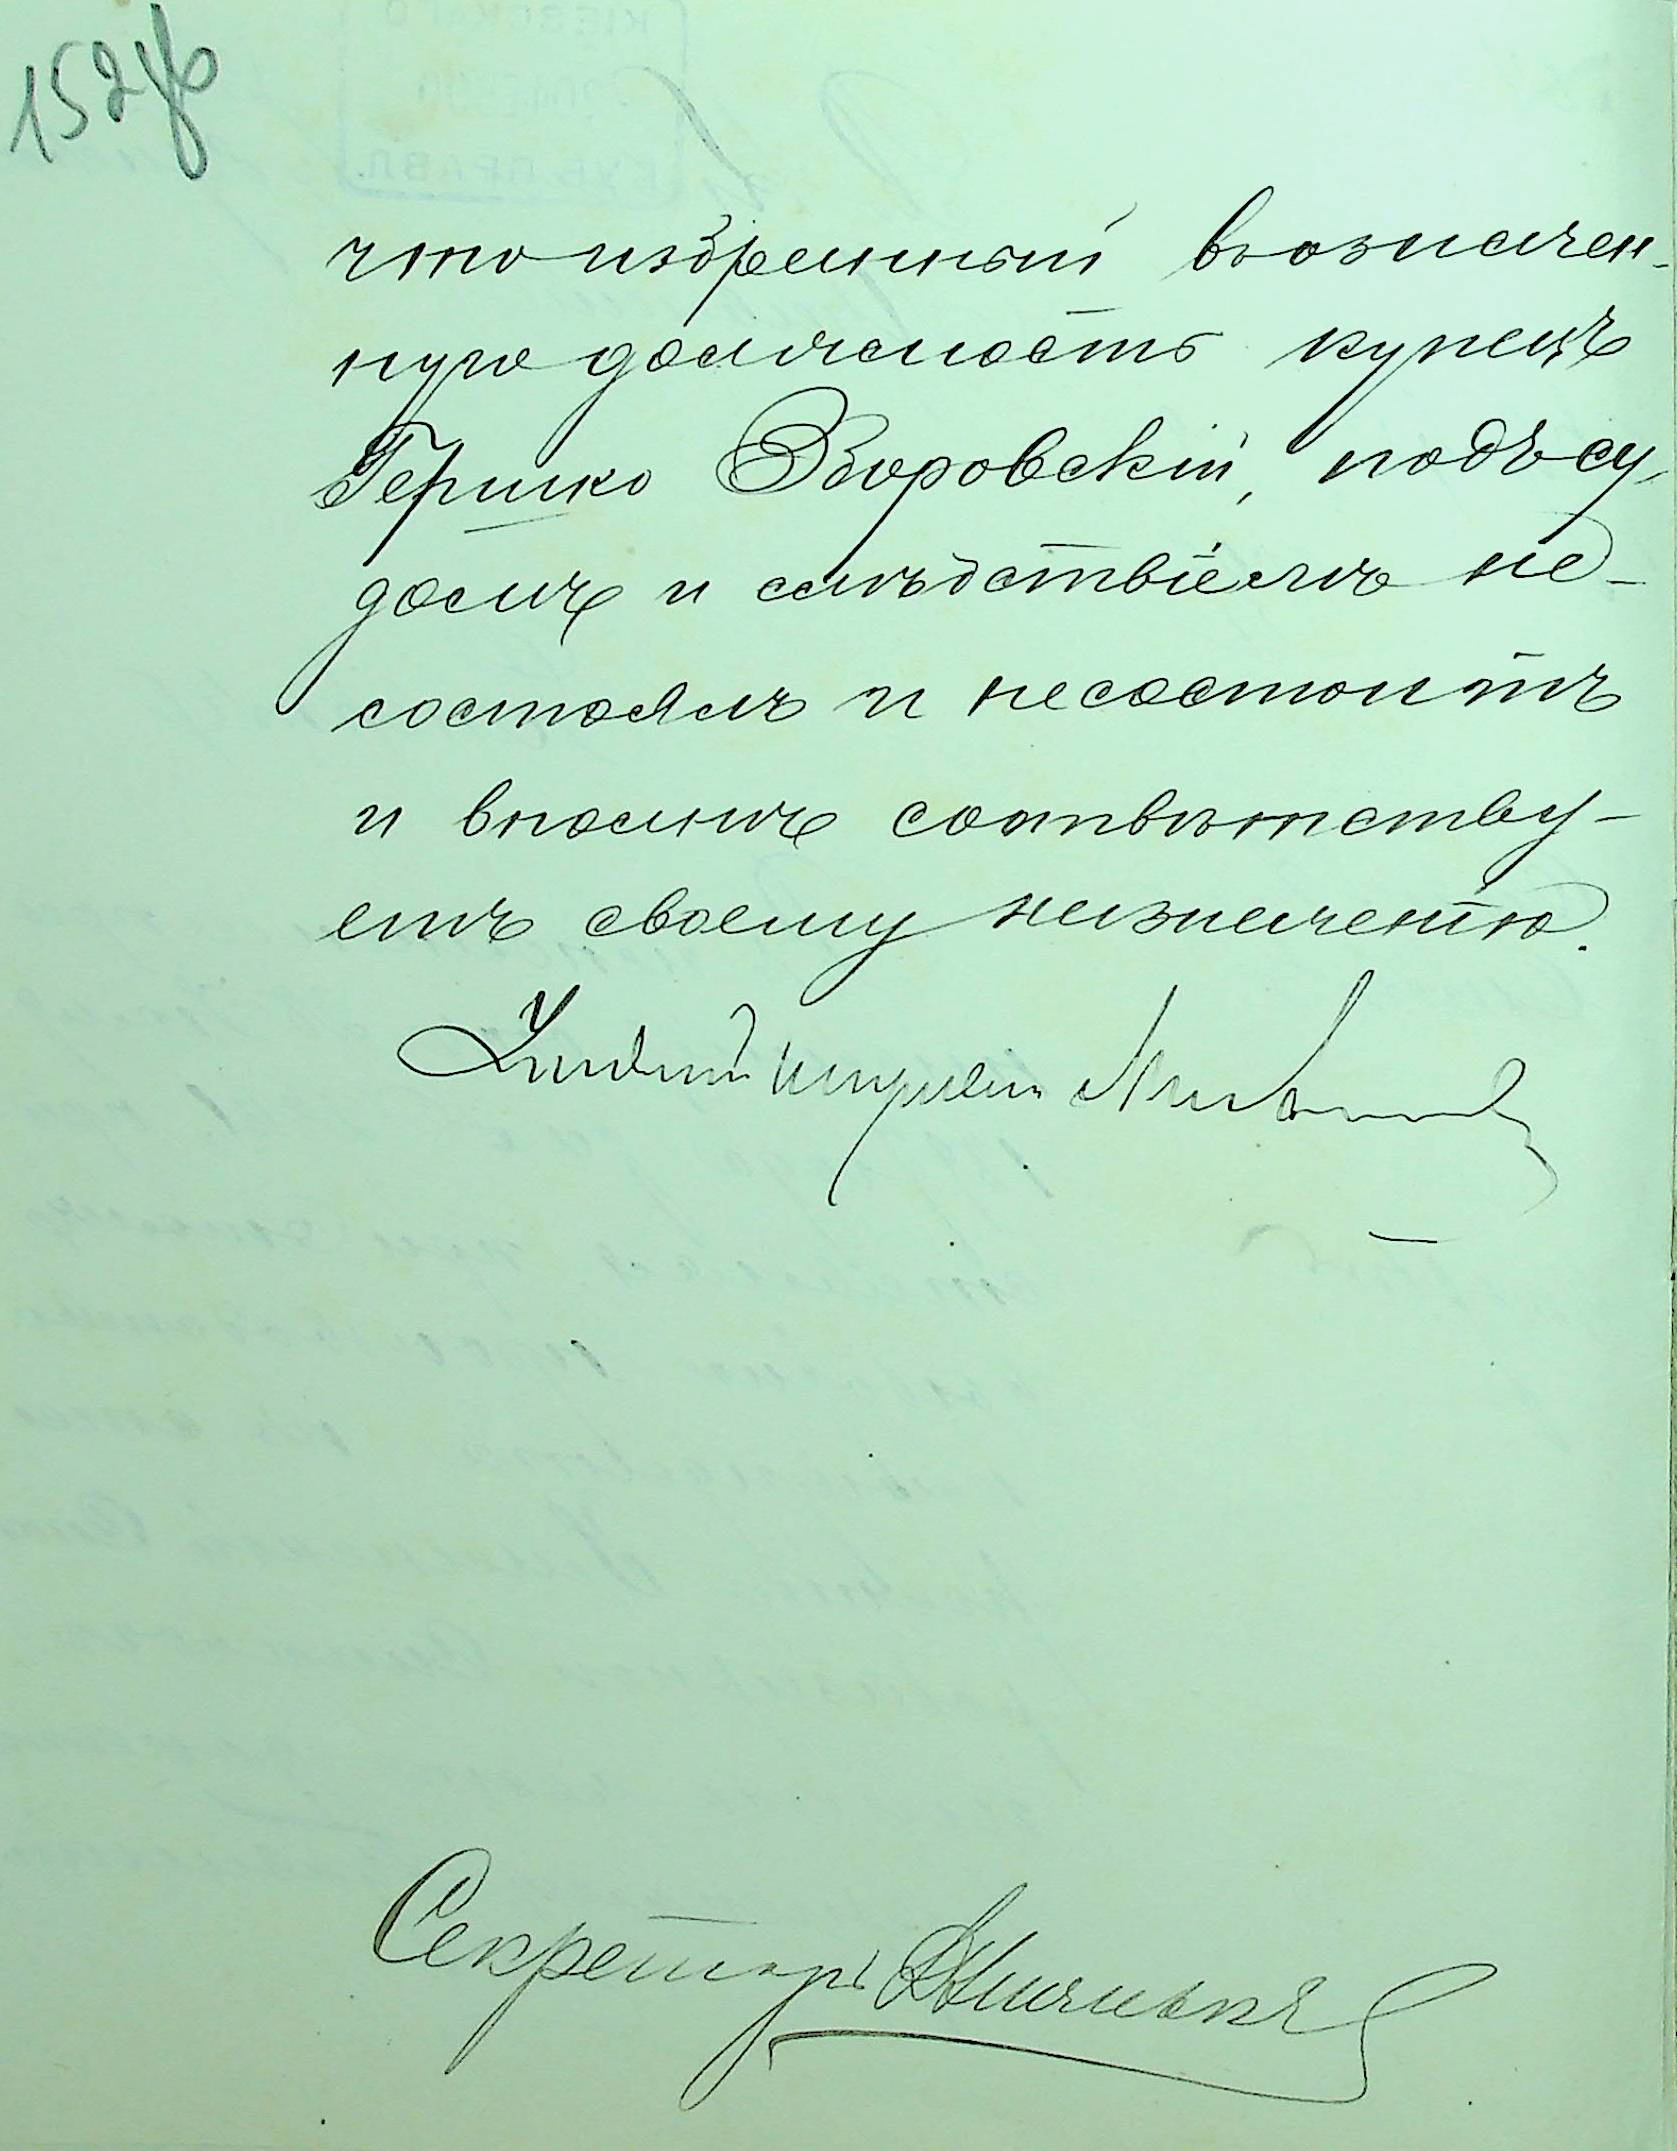 152 об
что избранный въ означен-
ную должность купецъ
Гершко Зворовскій, подъ су-
домъ и слѣдствіемъ не-
состоялъ и несостоитъ
и вполнѣ соотвѣтству-
етъ своему назначенію.
Уѣздный Исправникъ
Секретарь